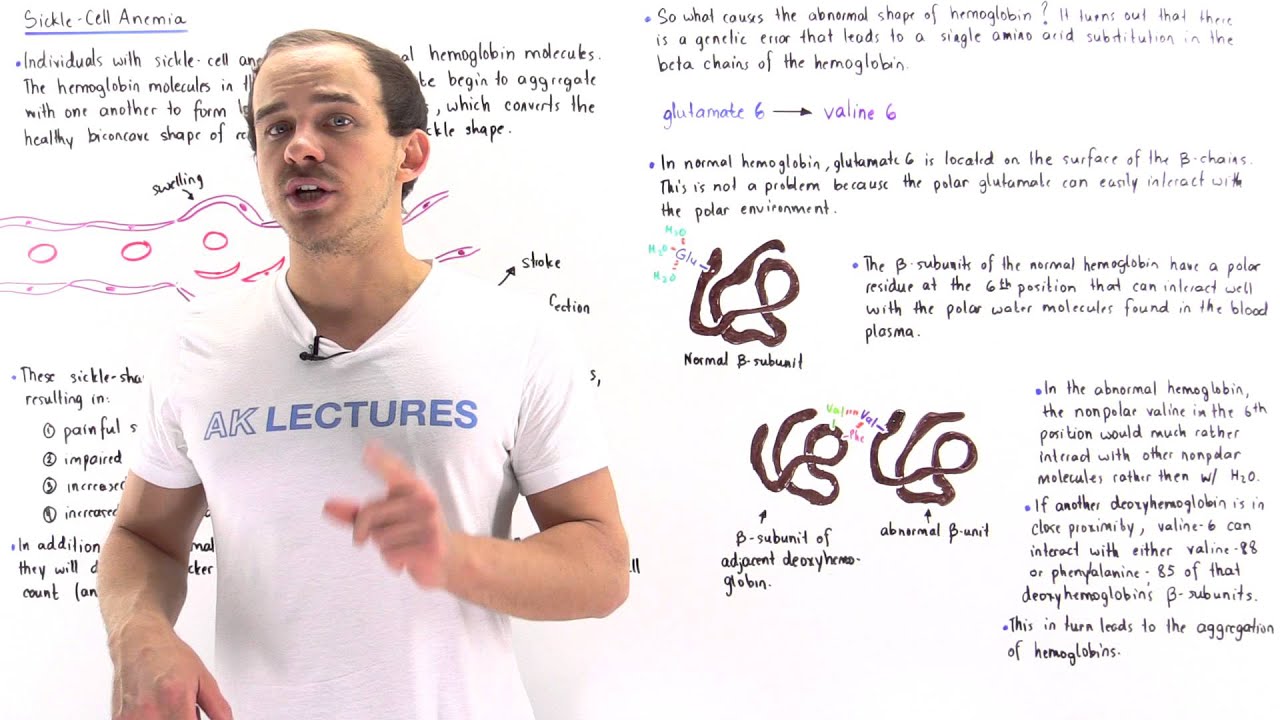 Sickle-Cell Anemia
• Individuals with sickle-cell al hemoglobin molecules.
The hemoglobin molecules in begin to aggregate
with one another to form , which converts the
healthy biconcave shape of shape.
swelling
stroke
• These sickle-sha s,
resulting in:
① painful s
② impaired
③ increase
④ increased
• In addition mal
they will d cker ll
count (an
AK LECTURES
• So what causes the abnormal shape of hemoglobin? It turns out that there
is a genetic error that leads to a single amino acid substitution in the
beta chains of the hemoglobin.
glutamate 6 → valine 6
• In normal hemoglobin, glutamate 6 is located on the surface of the β-chains.
This is not a problem because the polar glutamate can easily interact with
the polar environment.
H₂O
H₂O Glu
H₂O
Normal β-subunit
• The β-subunits of the normal hemoglobin have a polar
residue at the 6th position that can interact well
with the polar water molecules found in the blood
plasma.
Val Val
Phe
β-subunit of
adjacent deoxyhemo-
globin.
abnormal β-unit
• In the abnormal hemoglobin,
the nonpolar valine in the 6th
position would much rather
interact with other nonpolar
molecules rather then w/ H₂O.
• If another deoxyhemoglobin is in
close proximity, valine-6 can
interact with either valine-88
or phenylalanine-85 of that
deoxyhemoglobin's β-subunits.
• This in turn leads to the aggregation
of hemoglobins.